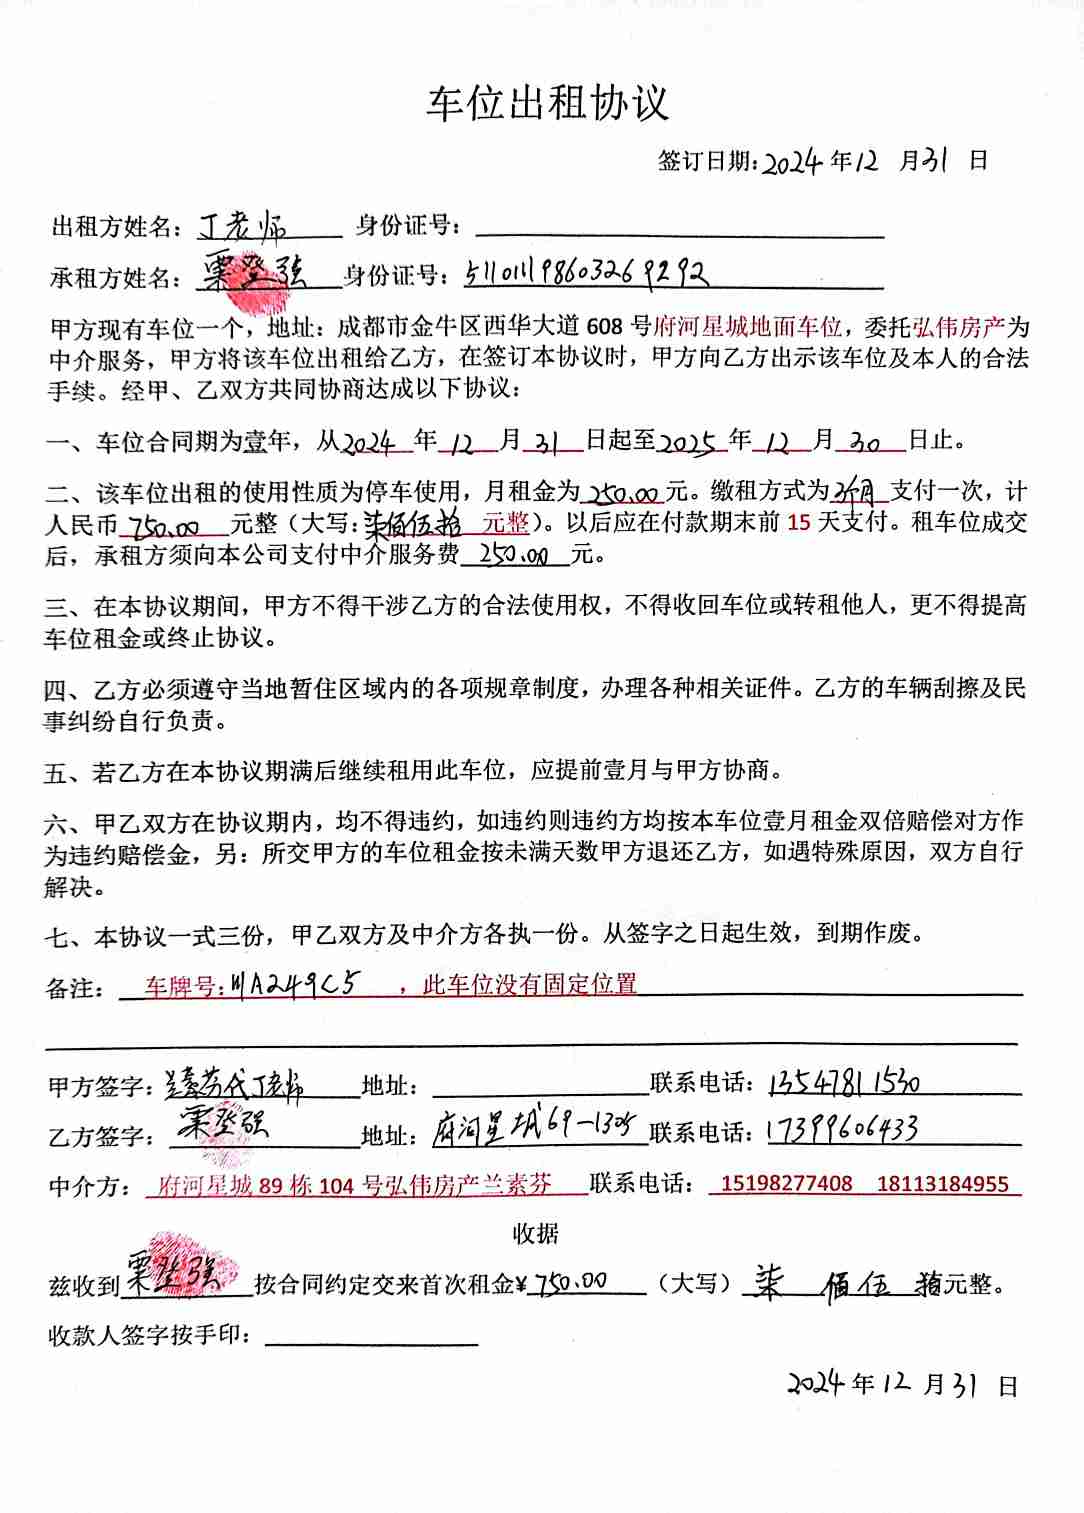 车位出租协议
签订日期:2024年12月31日
出租方姓名：丁老师 身份证号：
承租方姓名：栗登强 身份证号：511011198603269292
甲方现有车位一个，地址：成都市金牛区西华大道608号府河星城地面车位，委托弘伟房产为
中介服务，甲方将该车位出租给乙方，在签订本协议时，甲方向乙方出示该车位及本人的合法
手续。经甲、乙双方共同协商达成以下协议：
一、车位合同期为壹年，从2024年12月31日起至2025年12月30日止。
二、该车位出租的使用性质为停车使用，月租金为250.00元。缴租方式为3个月支付一次，计
人民币750.00元整（大写:柒佰伍拾 元整）。以后应在付款期末前15天支付。租车位成交
后，承租方须向本公司支付中介服务费250.00元。
三、在本协议期间，甲方不得干涉乙方的合法使用权，不得收回车位或转租他人，更不得提高
车位租金或终止协议。
四、乙方必须遵守当地暂住区域内的各项规章制度，办理各种相关证件。乙方的车辆刮擦及民
事纠纷自行负责。
五、若乙方在本协议期满后继续租用此车位，应提前壹月与甲方协商。
六、甲乙双方在协议期内，均不得违约，如违约则违约方均按本车位壹月租金双倍赔偿对方作
为违约赔偿金，另：所交甲方的车位租金按未满天数甲方退还乙方，如遇特殊原因，双方自行
解决。
七、本协议一式三份，甲乙双方及中介方各执一份。从签字之日起生效，到期作废。
备注：车牌号:川A249C5 ，此车位没有固定位置
甲方签字：兰素芬代丁老师 地址： 联系电话：13547811530
乙方签字：栗登强 地址：府河星城69-1305 联系电话：17399606433
中介方：府河星城89栋104号弘伟房产兰素芬 联系电话：15198277408 18113184955
收据
兹收到栗登强按合同约定交来首次租金¥750.00（大写）柒佰伍拾元整。
收款人签字按手印：
2024年12月31日